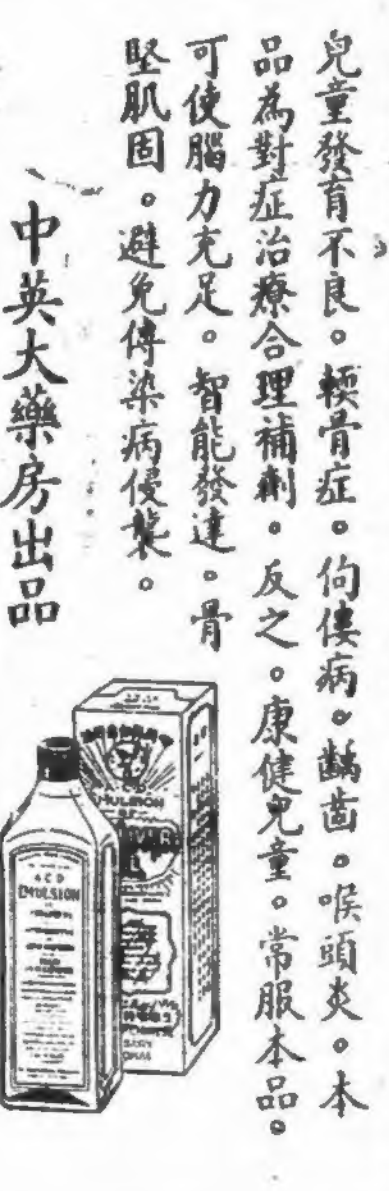 兒童發育不良。輭骨症。佝僂病。齲齿。喉頭炎。本
品為對症治療合理補劑。反之。康健兒童。常服本品。
可使腦力充足。智能發達。骨
堅肌固。避免傳染病侵襲。
中英大藥房出品
EMULSION
A C D
EMULSION